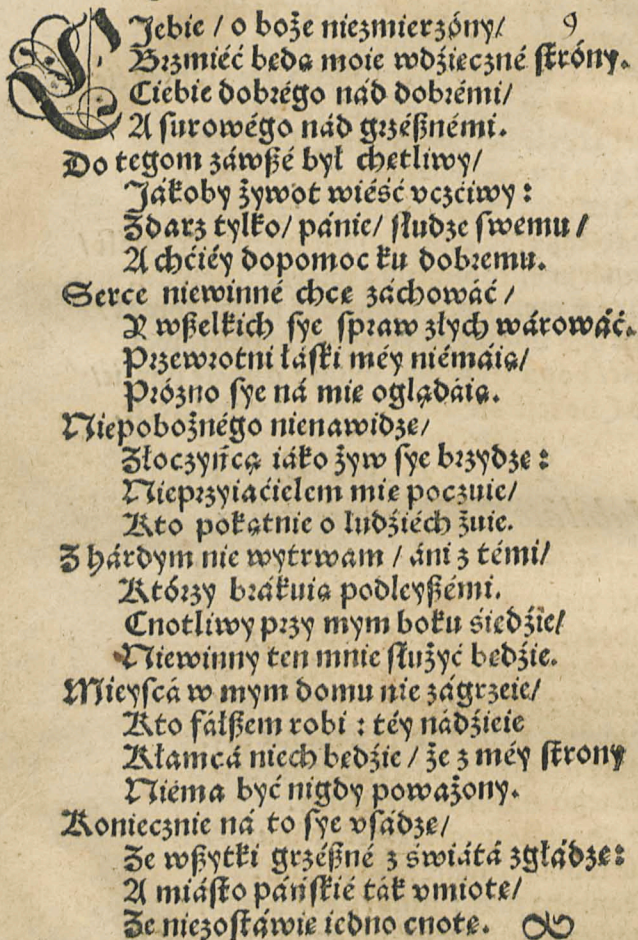 CJebie / o boże niezmierzóny/ 9
Brzmiéć będą moie wdźięczné stróny.
Ciebie dobrégo nád dobrémi/
A surowégo nád grzésznémi.
Do tegom záwszé był chętliwy/
Jákoby żywot wiéść vczćiwy:
Zdarz tylko/ pánie/ słudze swemu/
A chćiéy dopomoc ku dobremu.
Serce niewinné chcę záchowáć/
Y wszelkich sye spraw złych wárowáć.
Przewrotni łáski méy niémáią/
Prózno sye ná mię oglądáią.
Niepobożnégo nienawidzę/
Złoczyńcą iáko żyw sye brzydzę:
Nieprzyiaćielem mię poczuie/
Kto pokątnie o ludźiéch żuie.
Z hárdym nie wytrwam / áni z témi/
Którzy brákuią podleyszémi.
Cnotliwy przy mym boku śiędźie/
Niewinny ten mnie służyć będźie.
Mieyscá w mym domu nie zágrzeie/
Kto fáłszem robi: téy nádźieie
Kłamcá niech będźie / że z méy strony
Niéma być nigdy poważony.
Koniecznie ná to sye vsádzę/
Że wszytki grzészné z świátá zgłádzę:
A miásto páńskié ták vmiotę/
Że niezostáwię iedno cnotę.